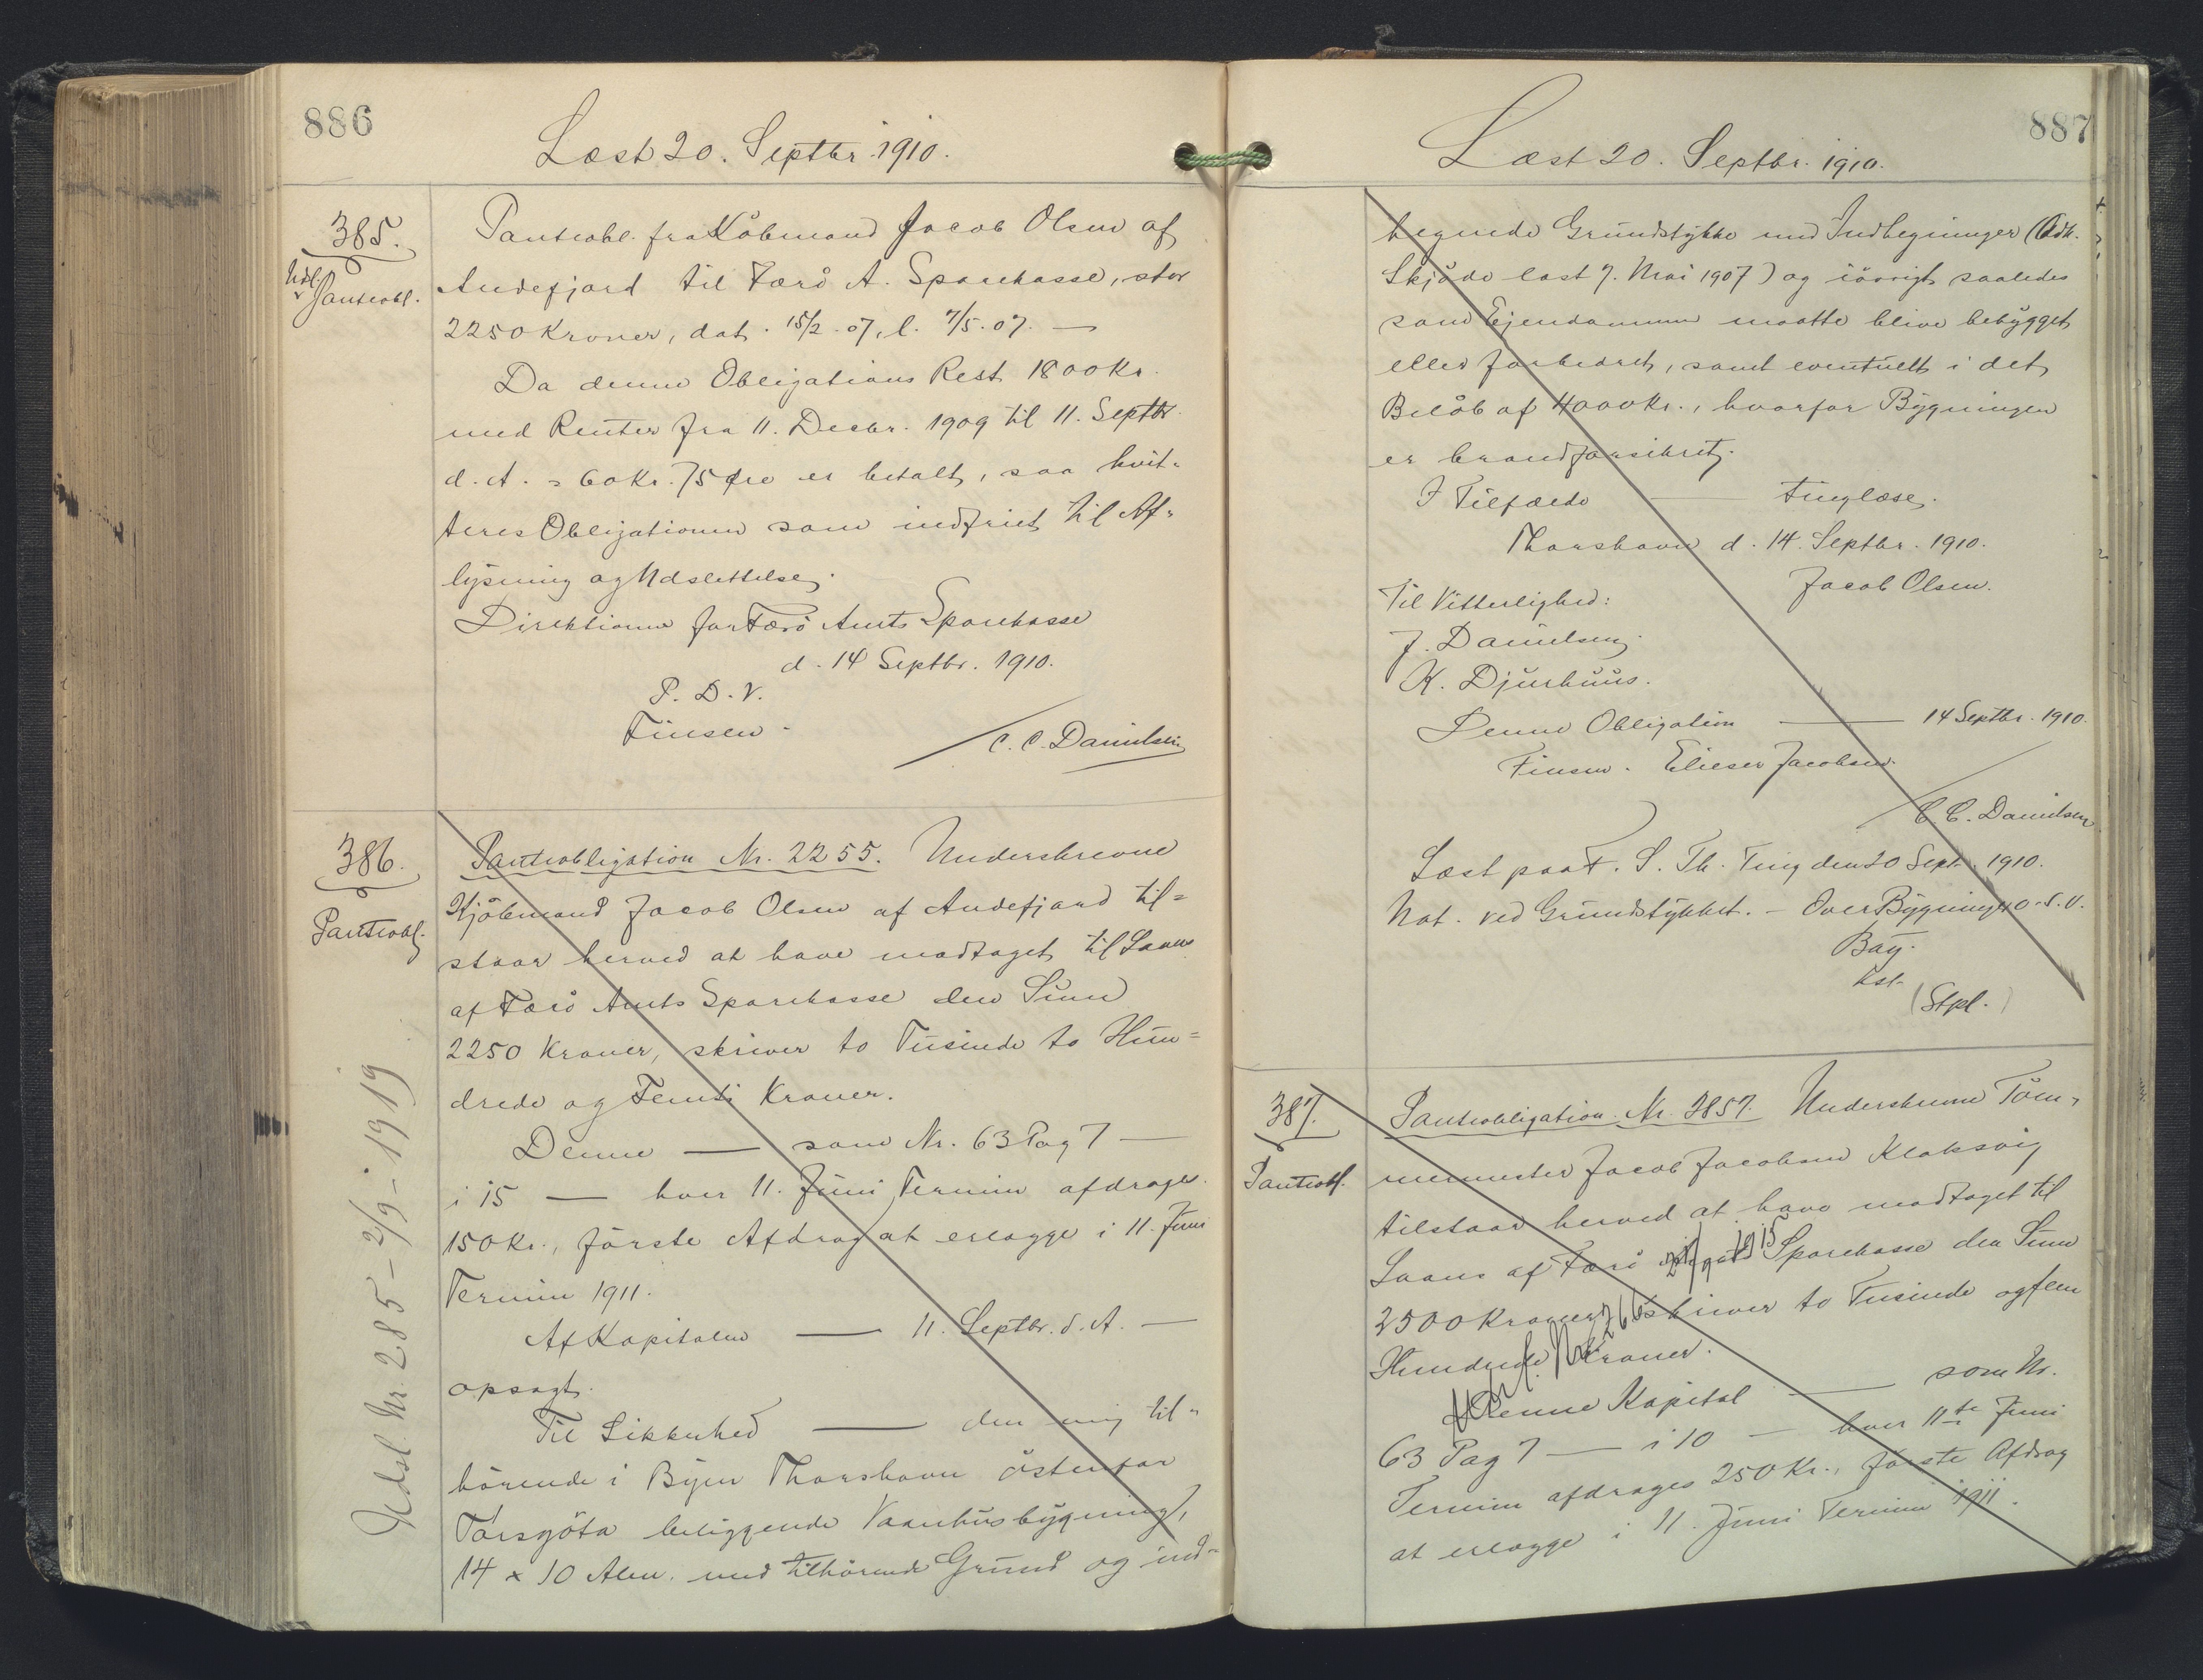 886
Læst 20. Septbr. 1910.
385.
Udl.
Panteobl.
Panteobl. fra Köbmand Jacob Olsen af
Andefjord til Færö A. Sparekasse, stor
2250 Kroner, dat. 15/2 07, l. 7/5. 07. —
Da denne Obligations Rest 1800 Kr.
med Renter fra 11. Decbr. 1909 til 11. Septbr.
d. A. = 60 Kr. 75 Øre er betalt, saa kvit-
teres Obligationen som indfriet til Af-
lysning og Udslettelse.
Direktionen for Færö Amts Sparekasse
d. 14 Septbr. 1910.
P. D. V.
Finsen.
/ C. C. Danielsen
386.
Panteobl.
Udsl. Nr. 285 - 2/9 - 1919
Panteobligation Nr. 2255. Underskrevne
Kjöbmand Jacob Olsen af Andefjord til-
staar herved at have modtaget til Laans
af Færö Amts Sparekasse den Sum
2250 Kroner, skriver to Tusinde to Hun-
drede og Femti Kroner.
Denne — som Nr. 63 Pag 7 —
i 15 — hver 11. Juni Termin afdrages
150 Kr., förste Afdrag at erlægge i 11. Juni
Termin 1911.
Af Kapitalen — 11. Septbr. d. A. —
opsagt.
Til Sikkerhed — den mig til-
hörende i Byen Thorshavn östenfor
Torsgöta beliggende Vaanhusbygning,
14 x 10 Alen. med tilhörende Grund og ind-
887
Læst 20. Septbr. 1910.
hegnede Grundstykke med Indhegninger (Adk.
Skjöde læst 7. Mai 1907) og iövrigt saaledes
som Ejendommen maatte blive bebygget
eller forbedret, samt eventuelt i det
Belöb af 4000 Kr., hvorfor Bygningen
er brandforsikret.
I Tilfælde — tinglæse.
Thorshavn d. 14. Septbr. 1910.
Jacob Olsen.
Til Vitterlighed:
J. Danielsen.
K. Djurhuus.
Denne Obligation — 14 Septbr. 1910.
Finsen. Elieser Jacobsen.
/ C. C. Danielsen
Læst paa F. S. Th. Ting den 20 Sept. 1910.
Not. ved Grundstykket. — Over Bygningen O. S. V.
Bay.
kst.
(Stpl.)
387.
Panteobl.
Panteobligation Nr. 3857. Underskrevne Töm-
mermester Jacob Jacobsen Klaksvig
tilstaar herved at have modtaget til
Laans af Færö Amts Sparekasse den Sum
2500 Kroner, skriver to Tusinde og fem
Hundrede Kroner.
Denne Kapital — som Nr.
63 Pag 7 — i 10 — hver 11te Juni
Termin afdrages 250 Kr., förste Afdrag
at erlægge i 11. Juni Termin 1911.